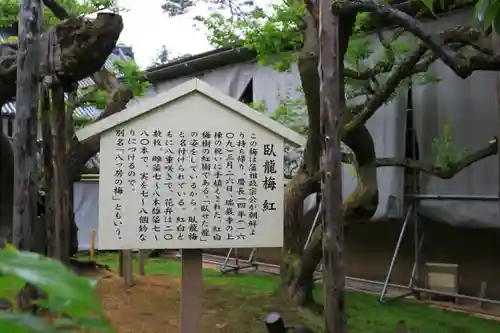 臥龍梅 紅
この梅は藩祖政宗公が朝鮮よ
り持ち帰り、慶長一四年(一六
〇九)三月二六日、瑞巌寺の上
棟の祝いに手植えされた、紅白
梅樹の紅樹である。「臥せた龍」
の姿をしているから、臥龍梅
と名付けられている。紅白と
もに八重咲で、花弁は二〇
数枚、雌蕊七〜
八〇本で、実を七〜八個鈴な
りにつけるので、
別名「八つ房の梅」ともいう。